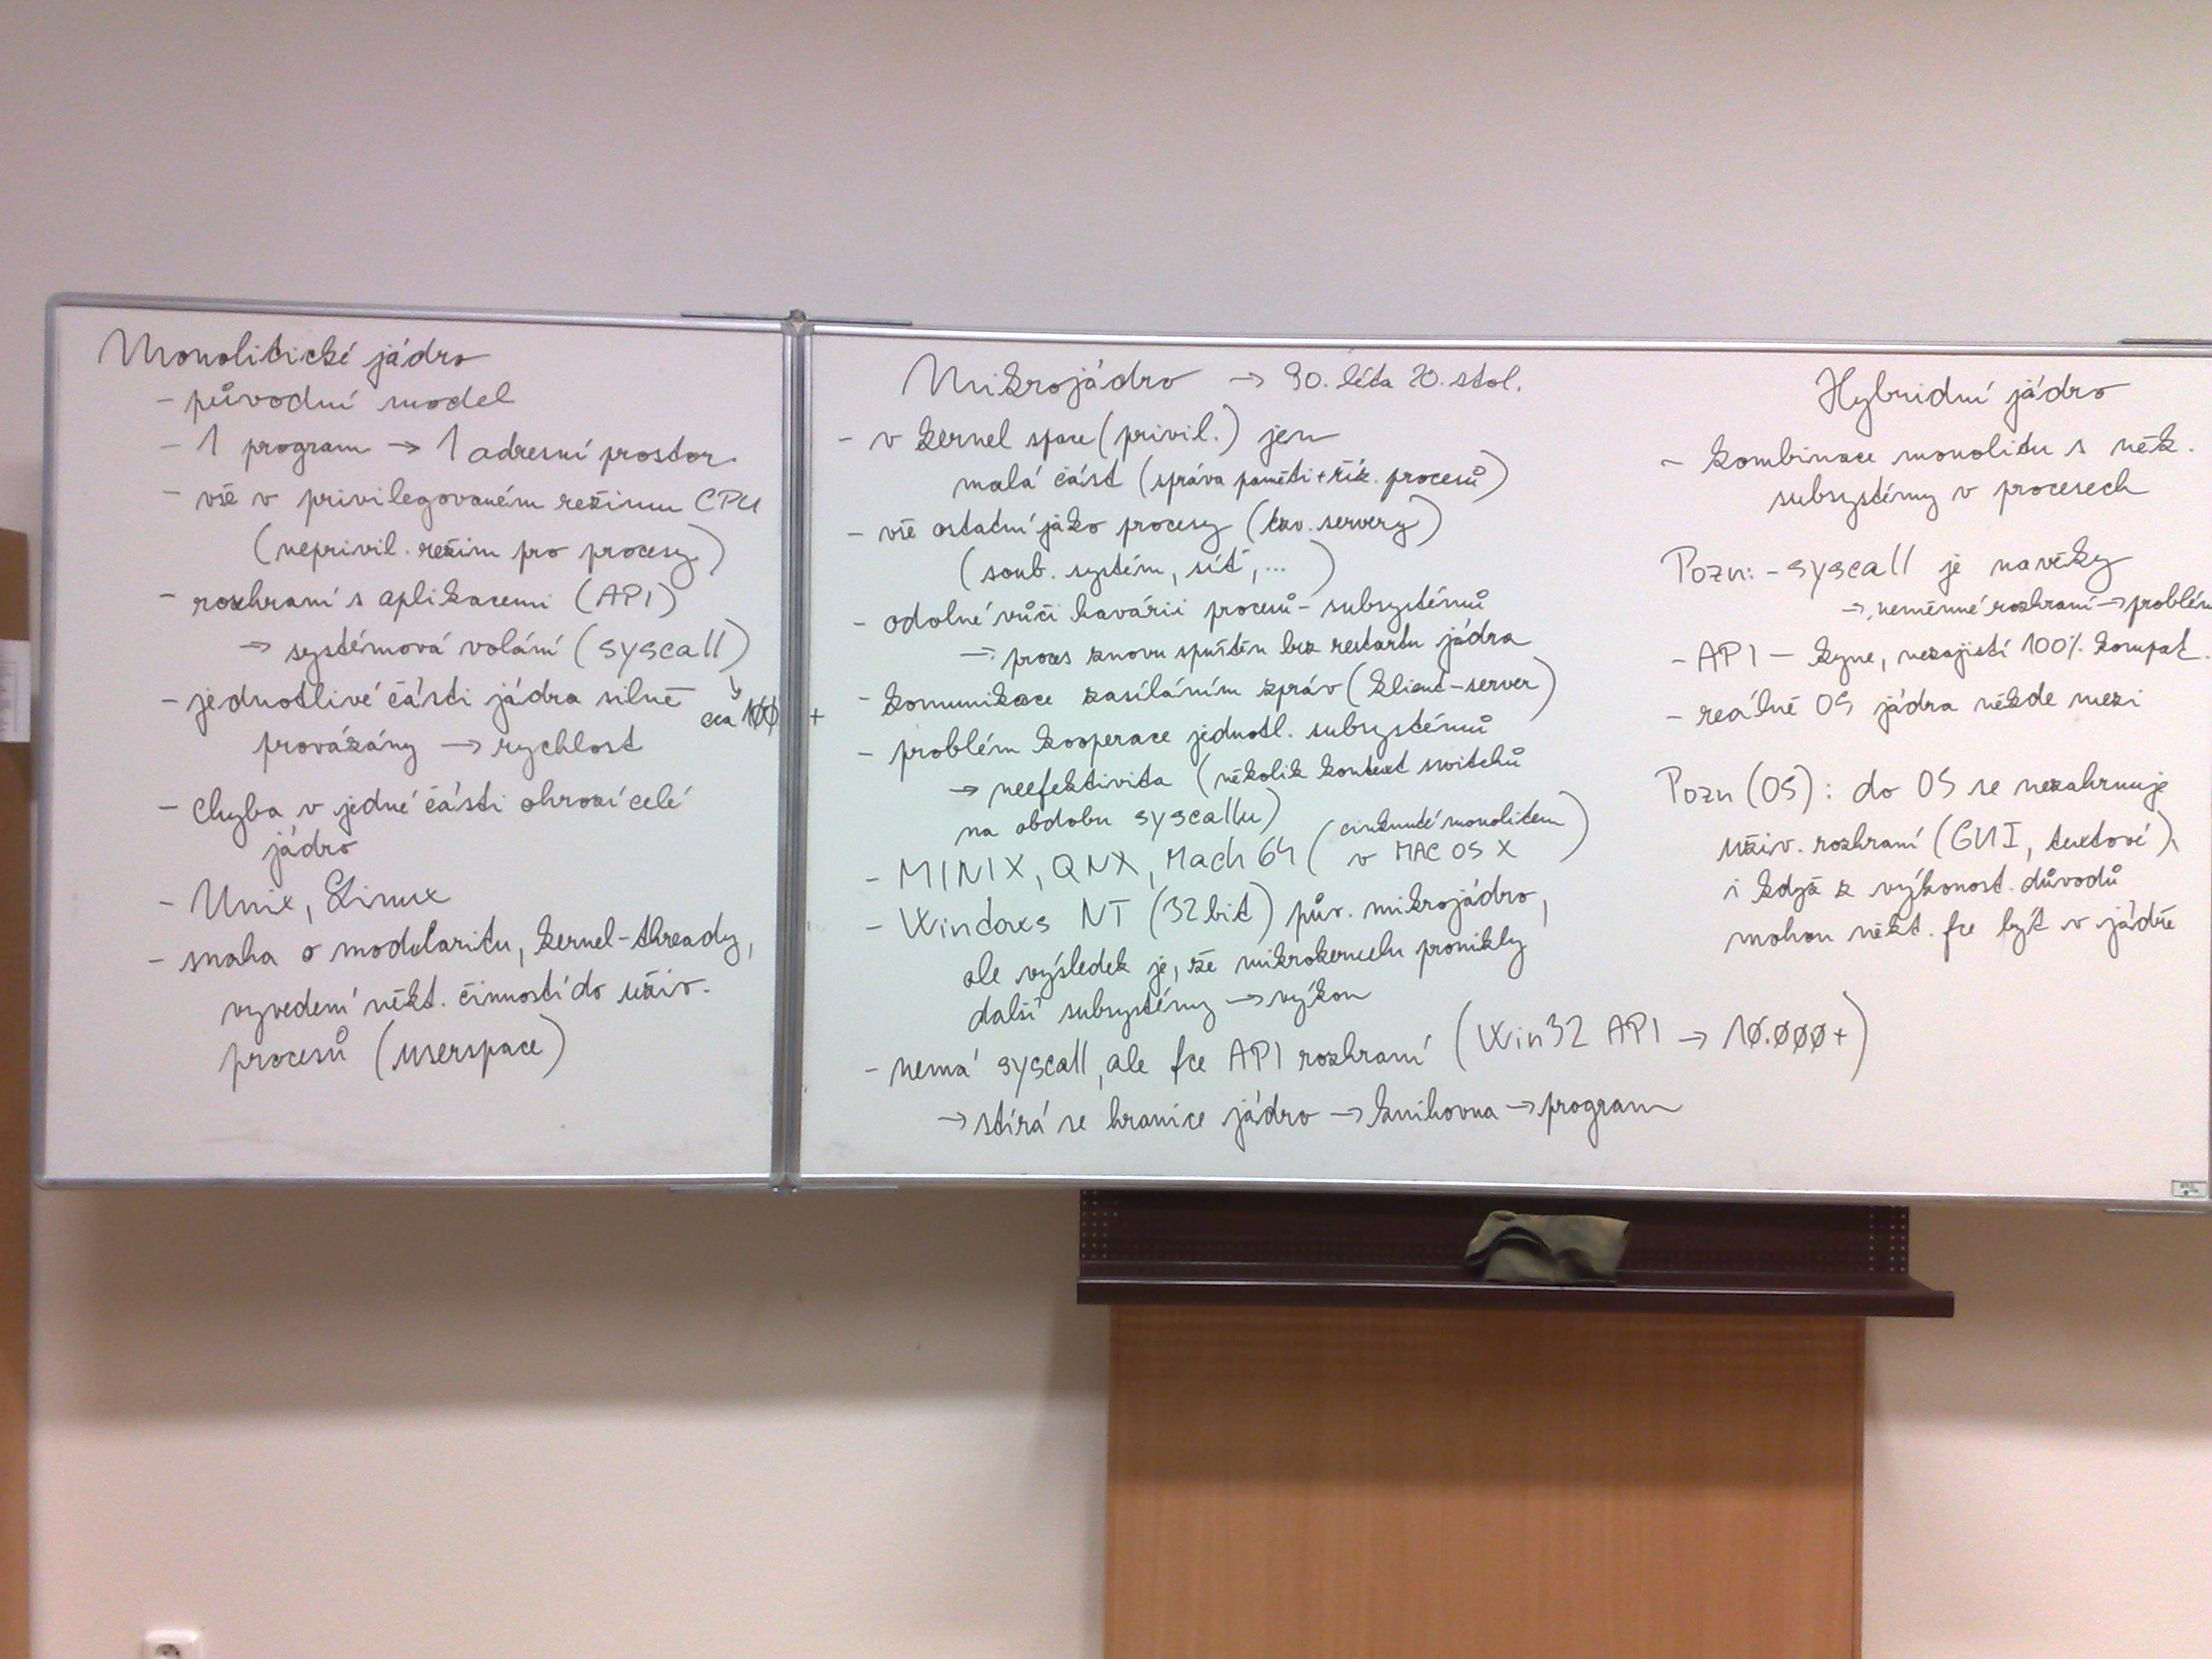 Monolitické jádro
- původní model
- 1 program → 1 adresní prostor
- vše v privilegovaném režimu CPU
(neprivil. režim pro procesy)
- rozhraní s aplikacemi (API)
→ systémová volání (syscall)
↳ cca 100+
- jednotlivé části jádra silně
provázány → rychlost
- chyba v jedné části ohrozí celé
jádro
- Unix, Linux
- snaha o modularitu, kernel-thready,
vyvedení někt. činností do uživ.
procesů (userspace)
Mikrojádro → 90. léta 20. stol.
- v kernel space (privil.) jen
malá část (správa paměti + říz. procesů)
- vše ostatní jako procesy (tzv. servery)
(soub. systém, síť, ...)
- odolné vůči havárii procesů - subsystémů
→ proces znovu spuštěn bez restartu jádra
- komunikace zasíláním zpráv (klient-server)
- problém kooperace jednotl. subsystémů
→ neefektivita (několik kontext switchů
na obdobu syscallu)
- MINIX, QNX, Mach 64 (cinknuté monolitem
v MAC OS X)
- Windows NT (32bit) pův. mikrojádro,
ale výsledek je, že mikrokernelu pronikly
další subsystémy → výkon
- nemá syscall, ale fce API rozhraní (Win32 API → 10.000+)
→ stírá se hranice jádro → knihovna → program
Hybridní jádro
- kombinace monolitu s něk.
subsystémy v procesech
Pozn: - syscall je navěky
→ neměnné rozhraní → problém
- API - kyne, nezajistí 100% kompat.
- reálně OS jádra někde mezi
Pozn (OS): do OS se nezahrnuje
uživ. rozhraní (GUI, textové),
i když z výkonost. důvodů
mohou někt. fce být v jádře